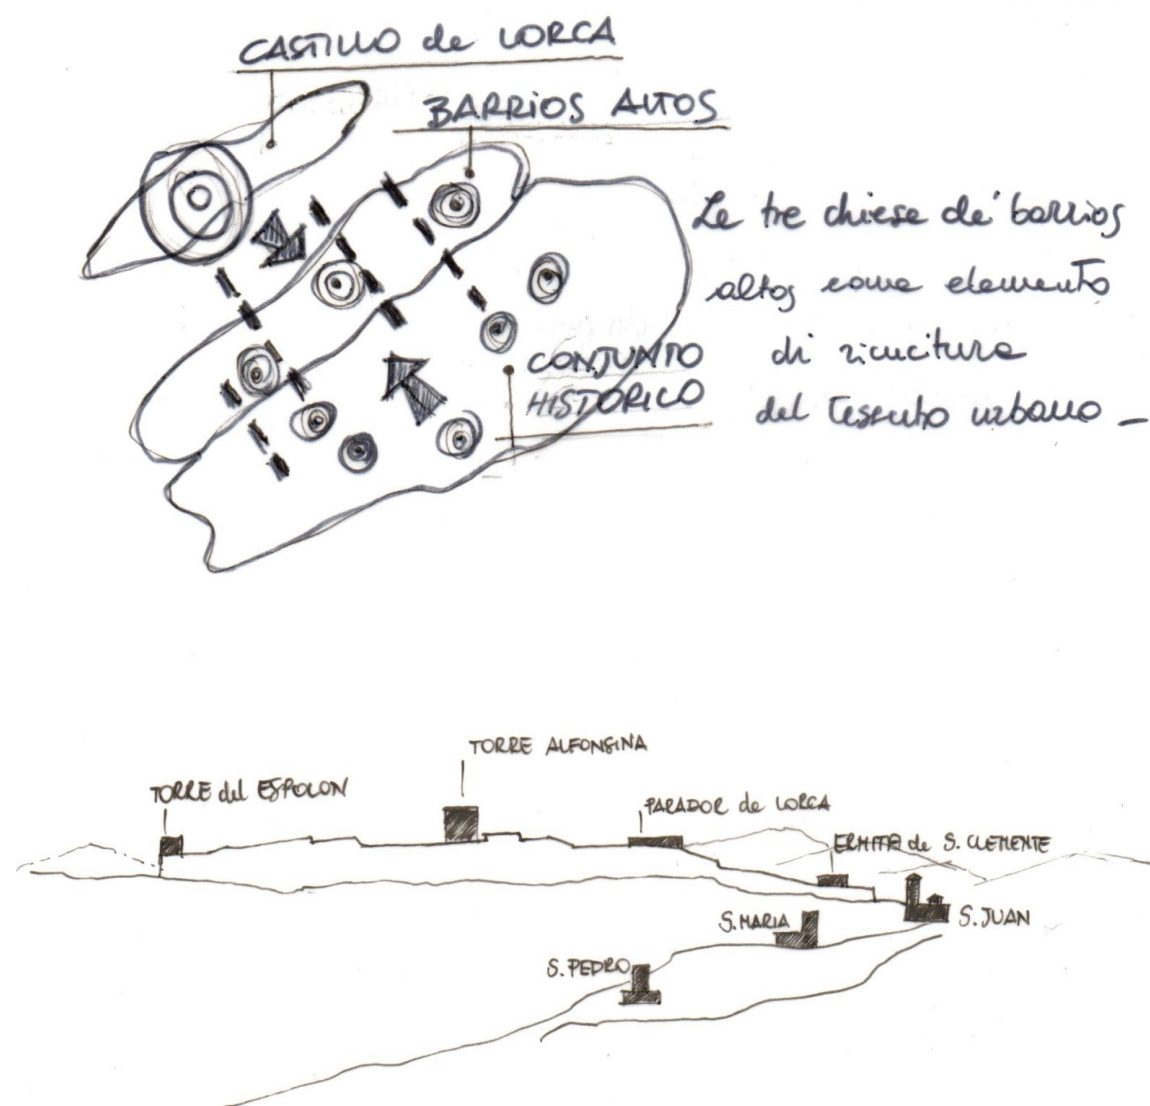 CASTILLO de LORCA
BARRIOS ALTOS
Le tre chiese de' barrios
altos come elemento
di ricucitura
del tessuto urbano -
CONJUNTO
HISTÓRICO
TORRE ALFONSINA
TORRE del ESPOLON
PARADOR de LORCA
ERMITA de S. CLEMENTE
S. MARIA
S. JUAN
S. PEDRO